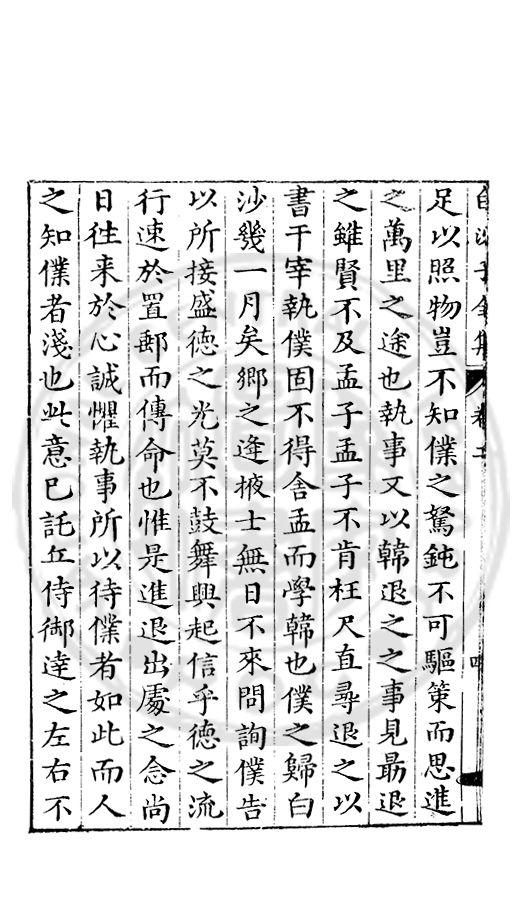 白沙子全集 卷
足以照物豈不知僕之駑鈍不可驅策而思進
之萬里之途也執事又以韓退之之事見勗退
之雖賢不及孟子孟子不肯枉尺直尋退之以
書干宰執僕固不得舍孟而學韓也僕之歸白
沙幾一月矣鄉之逢掖士無日不來問詢僕告
以所接盛德之光莫不鼓舞興起信乎德之流
行速於置郵而傳命也惟是進退出處之念尚
日往来於心誠懼執事所以待僕者如此而人
之知僕者淺也此意已託丘侍御達之左右不